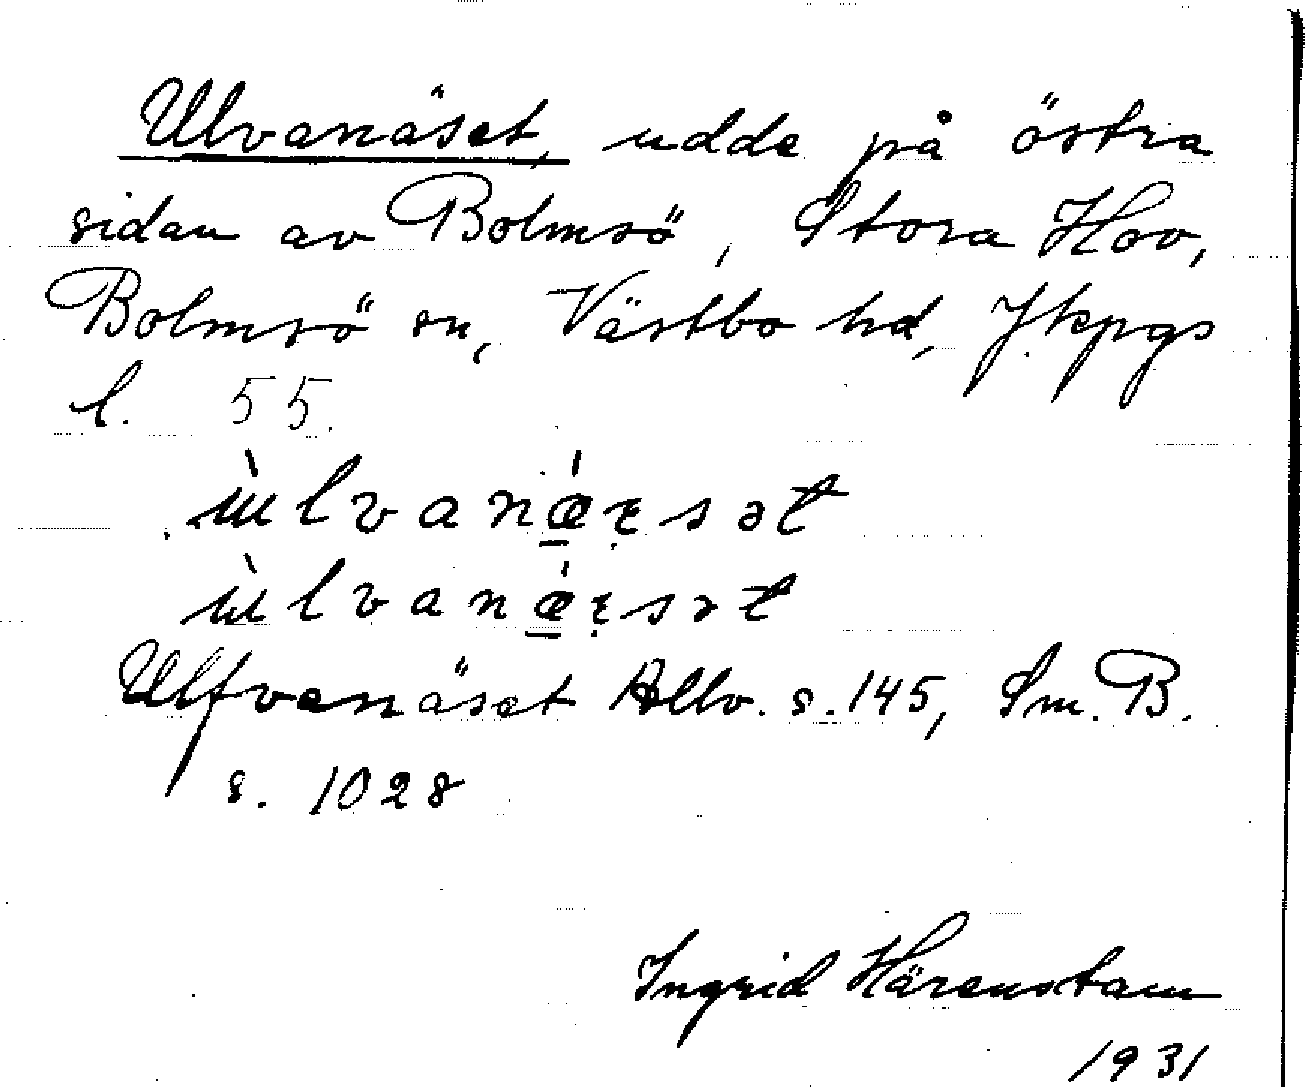 Ulvanäset, udde på östra
sidan av Bolmsö, Stora Hov,
Bolmsö sn, Västbo hd, Jkpgs
l. 55.
Ulfvanäset Allv. s. 145, Sm. B.
s. 1028
Ingrid Härenstam
1931